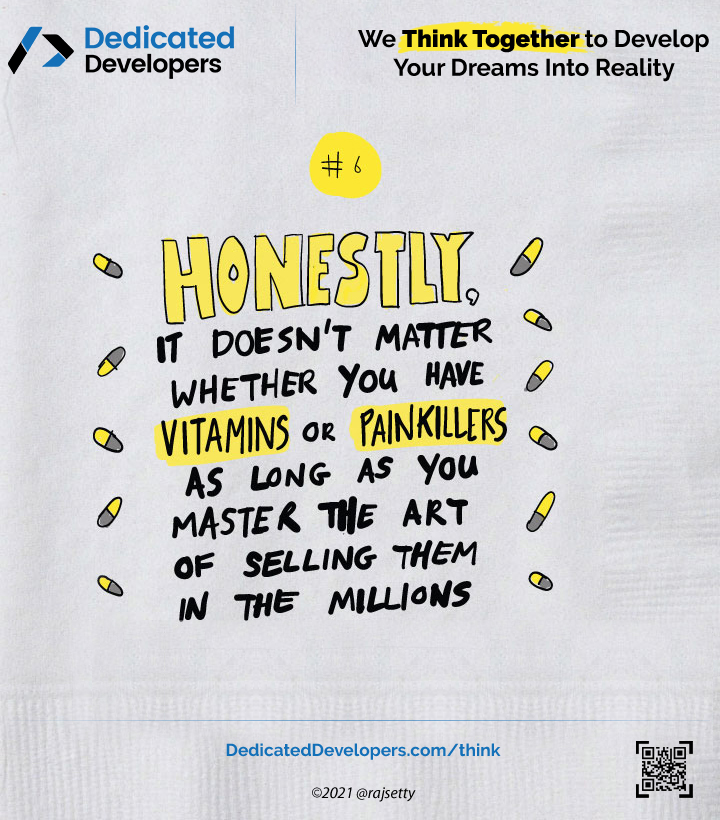 Dedicated
Developers
We Think Together to Develop
Your Dreams Into Reality
# 6
HONESTLY,
IT DOESN'T MATTER
WHETHER YOU HAVE
VITAMINS OR PAINKILLERS
AS LONG AS YOU
MASTER THE ART
OF SELLING THEM
IN THE MILLIONS
DedicatedDevelopers.com/think
©2021 @rajsetty